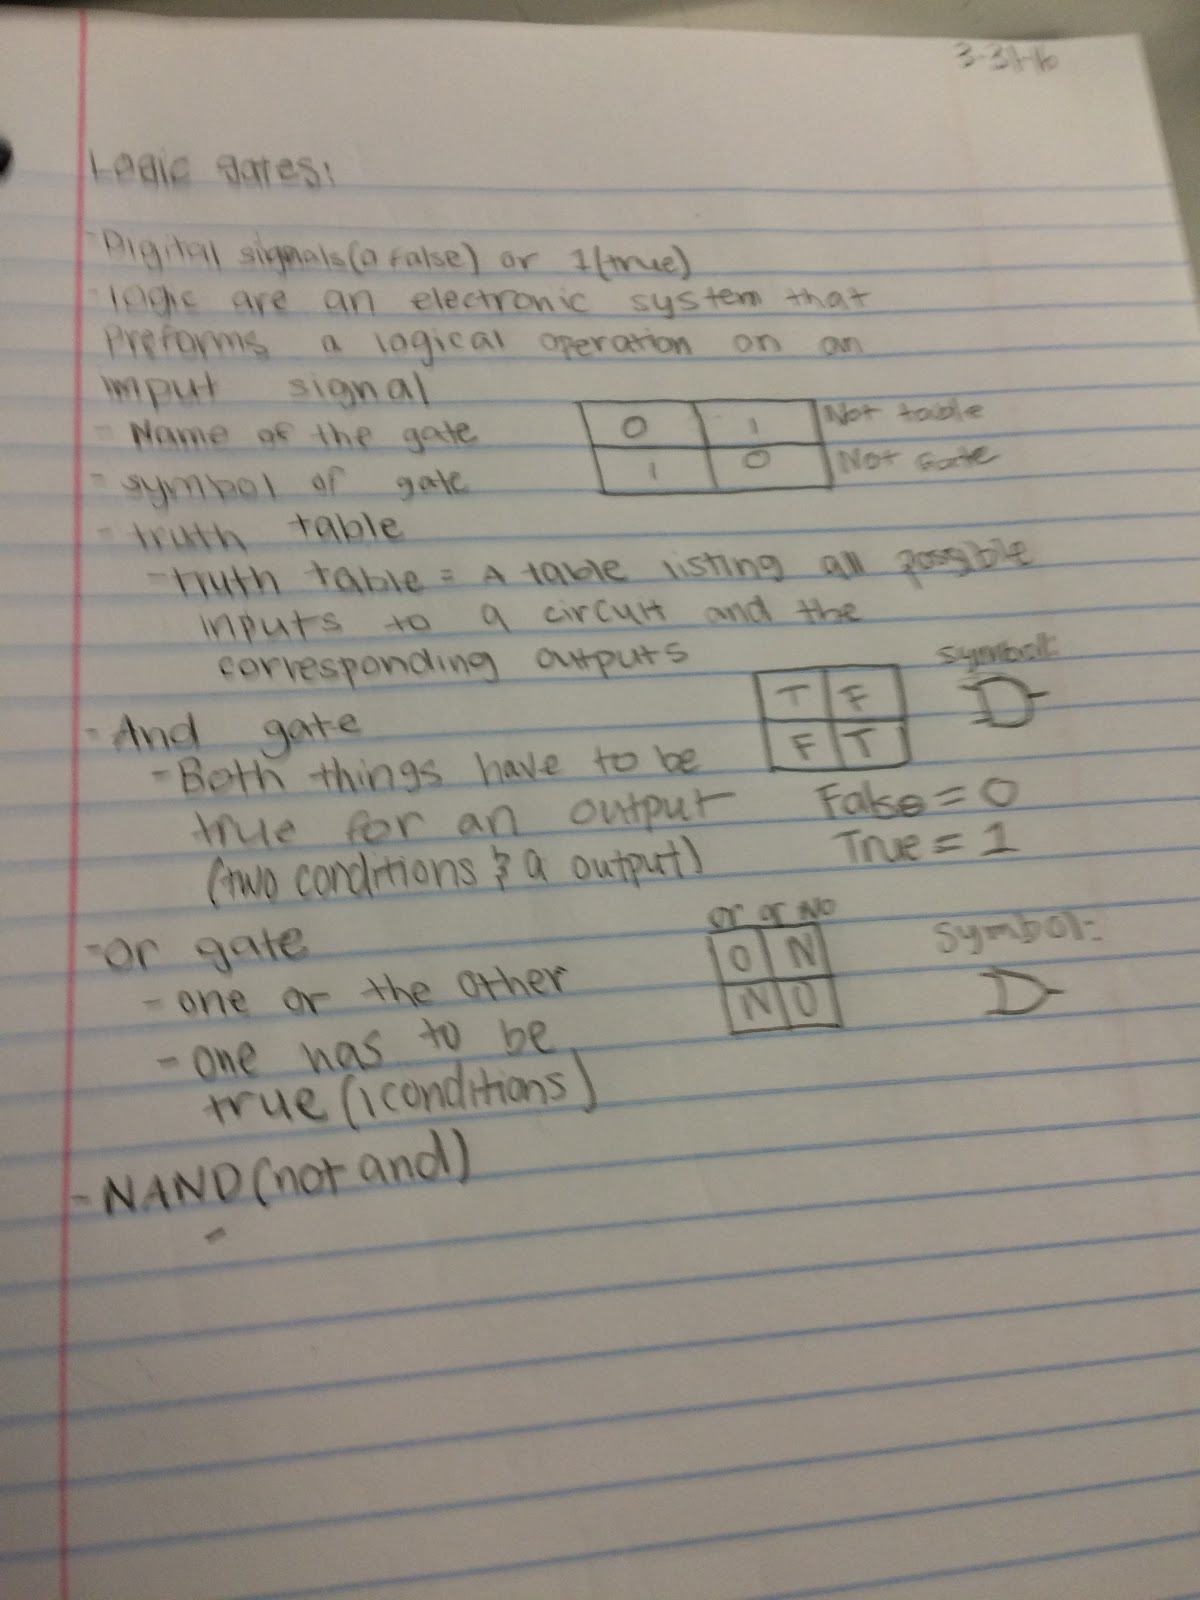 3-31-16
Logic gates:
- Digital signals (0 false) or 1 (true)
- logic are an electronic system that
Preforms a logical operation on an
imput signal
- Name of the gate
0 1 Not table
1 0 Not Gate
- symbol of gate
- truth table
- truth table = A table listing all possible
inputs to a circuit and the
corresponding outputs
- And gate
T F
F T
symbol:
- Both things have to be
true for an output
(two conditions & a output)
False = 0
True = 1
- or gate
or or No
O N
N O
Symbol:
- one or the other
- one has to be
true (1 conditions)
- NAND (not and)
-